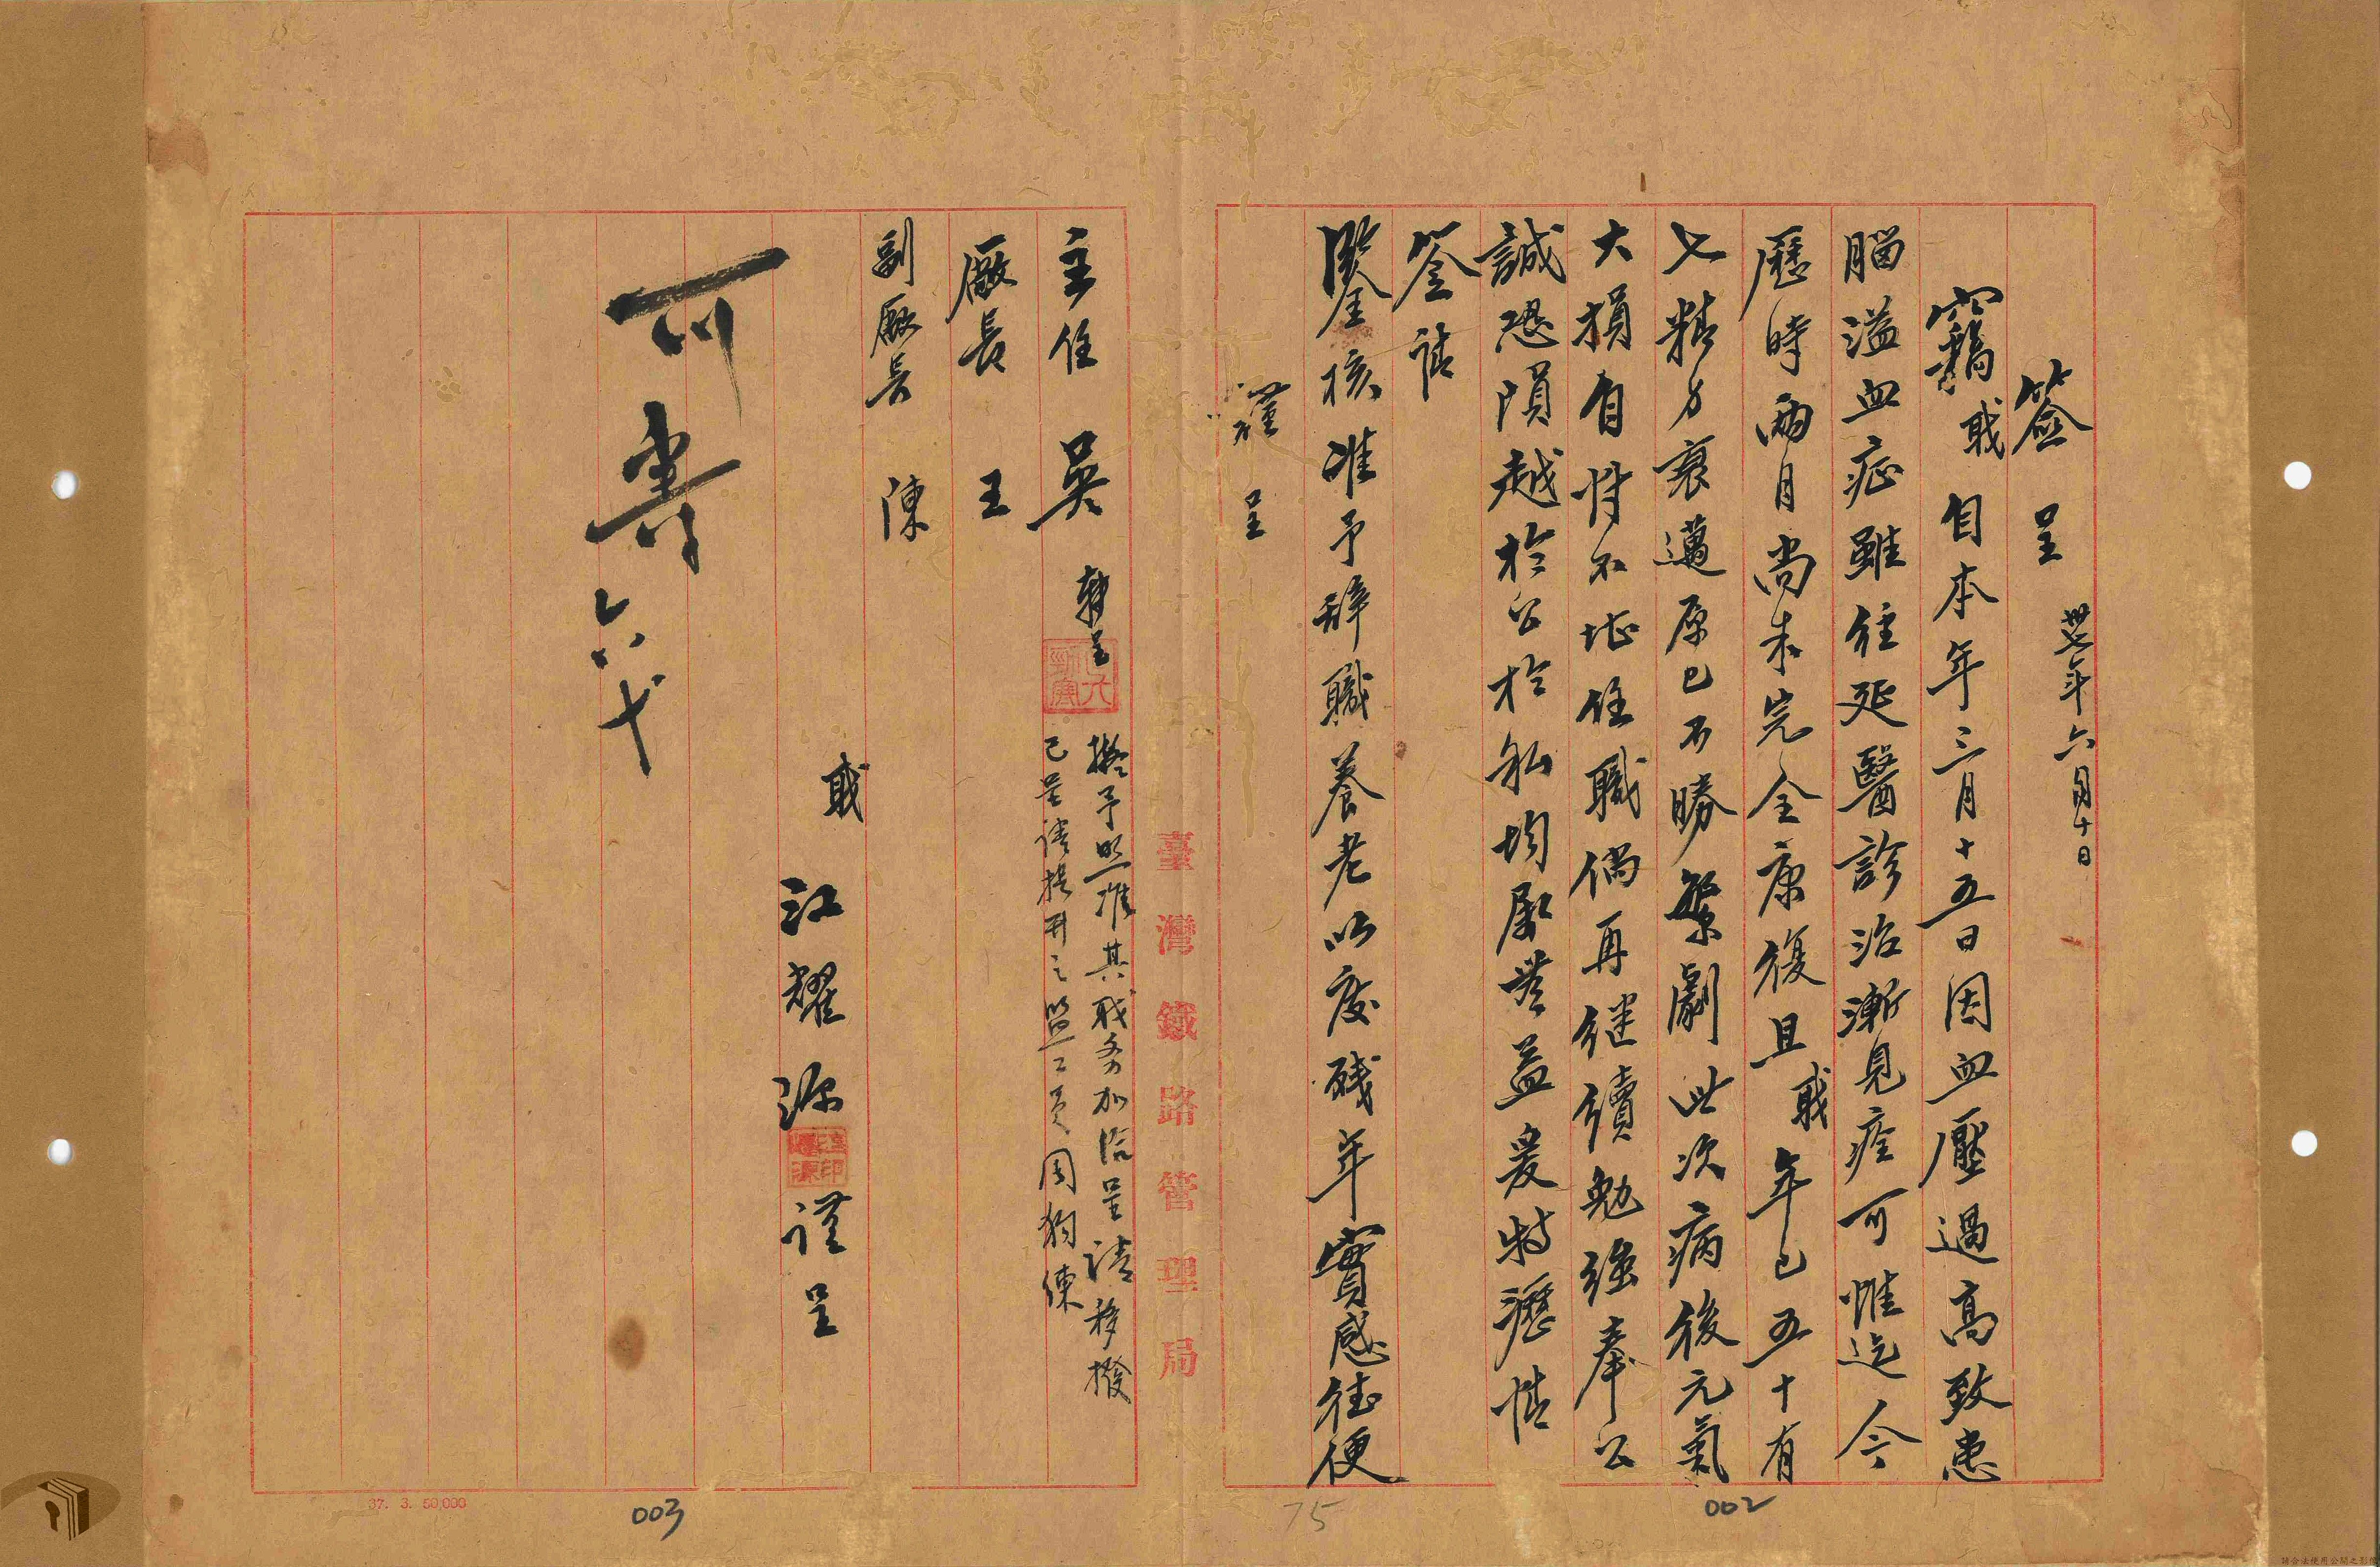 簽呈 卅七年六月十日
竊職自本年三月十五日因血壓過高致患
腦溢血症雖經延醫診治漸見痊可惟迄今
歷時兩月尚未完全康復且職年已五十有
七精力衰邁原已不勝繁劇此次病後元氣
大損自忖不堪任職倘再继續勉強奉公
誠恐隕越於公於私均屬無益爰特瀝情
簽請
鑒核准予辞職養老以度残年實感德便
謹呈
臺灣鐵路管理局
主任 吳 轉呈
擬予照准其職務加给呈請移撥
已呈請提升之監工員周狗陳
廠長 王
副廠長 陳
職 江耀源 謹呈
江耀源印
可 六
37. 3. 50,000
003
75
002